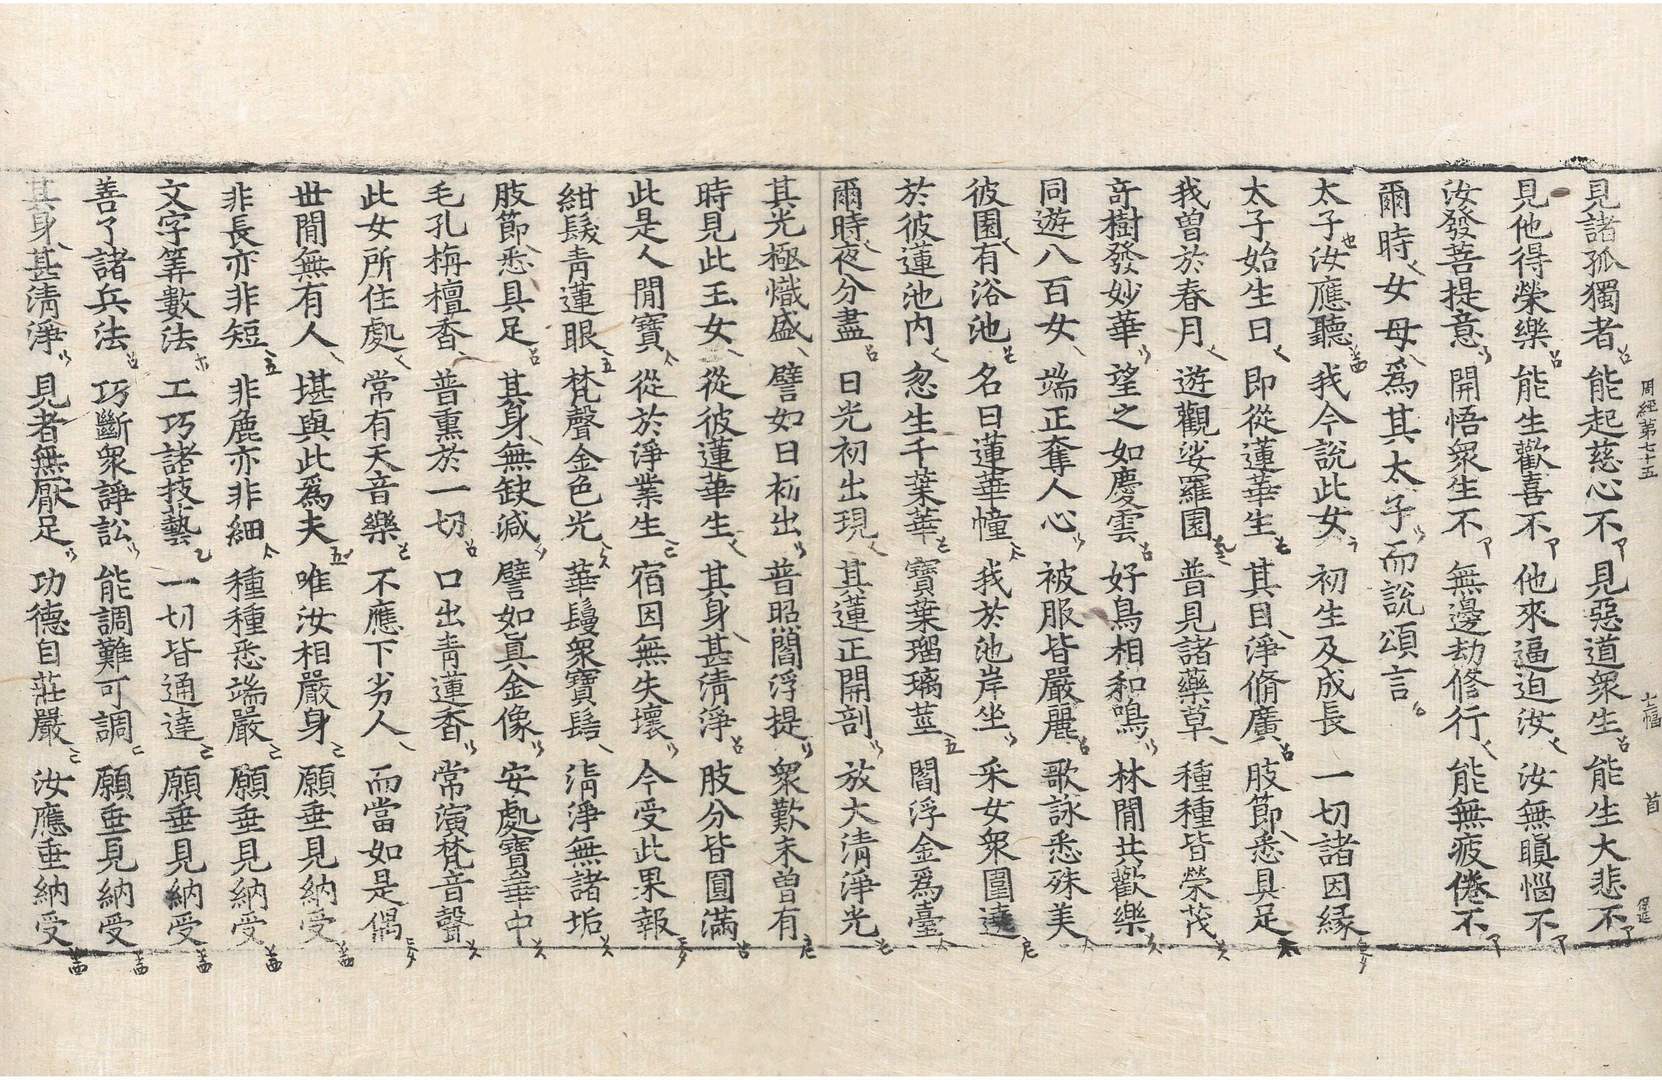 見諸孤獨者 能起慈心不 見惡道衆生 能生大悲不
見他得榮樂 能生歡喜不 他來逼迫汝 汝無瞋惱不
汝發菩提意 開悟衆生不 無邊劫修行 能無疲倦不
爾時女母爲其太子而說頌言
太子汝應聽 我今說此女 初生及成長 一切諸因緣
太子始生日 即從蓮華生 其目淨脩廣 肢節悉具足
我曾於春月 遊觀娑羅園 普見諸藥草 種種皆榮茂
奇樹發妙華 望之如慶雲 好鳥相和鳴 林閒共歡樂
同遊八百女 端正奪人心 被服皆嚴麗 歌詠悉殊美
彼園有浴池 名曰蓮華幢 我於池岸坐 采女衆圍遶
於彼蓮池內 忽生千葉華 寶葉瑠璃莖 閻浮金爲臺
爾時夜分盡 日光初出現 其蓮正開剖 放大淸淨光
其光極熾盛 譬如日初出 普昭閻浮提 衆歎未曾有
時見此玉女 從彼蓮華生 其身甚淸淨 肢分皆圓滿
此是人閒寶 從於淨業生 宿因無失壞 今受此果報
紺髮靑蓮眼 梵聲金色光 華鬘衆寶髻 淸淨無諸垢
肢節悉具足 其身無缺減 譬如眞金像 安處寶華中
毛孔栴檀香 普熏於一切 口出靑蓮香 常演梵音聲
此女所住處 常有天音樂 不應下劣人 而當如是偶
世閒無有人 堪與此爲夫 唯汝相嚴身 願垂見納受
非長亦非短 非麁亦非細 種種悉端嚴 願垂見納受
文字筭數法 工巧諸技藝 一切皆通達 願垂見納受
善了諸兵法 巧斷衆諍訟 能調難可調 願垂見納受
其身甚淸淨 見者無厭足 功德自莊嚴 汝應垂納受
周經第七十五
首